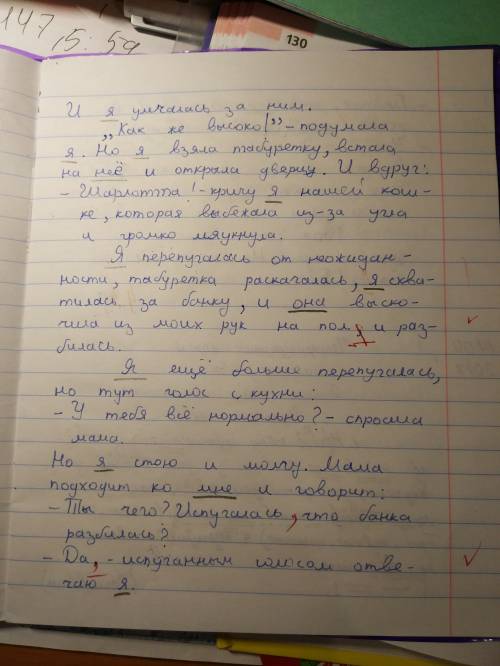 147
15:59
130
И я умчалась за ним.
„Как же высоко!” - подумала
я. Но я взяла табуретку, встала
на неё и открыла дверцу. И вдруг:
- Шарлотта! - кричу я нашей кош-
ке, которая выбежала из-за угла
и громко мяукнула.
Я перепугалась от неожидан-
ности, табуретка раскачалась, я схва-
тилась за банку, и она выско-
чила из моих рук на пол, и раз-
билась.
Я ещё больше перепугалась,
но тут голос с кухни:
- У тебя всё нормально? - спросила
мама.
Но я стою и молчу. Мама
подходит ко мне и говорит:
- Ты чего? Испугалась, что банка
разбилась?
- Да, - испуганным голосом отве-
чаю я.